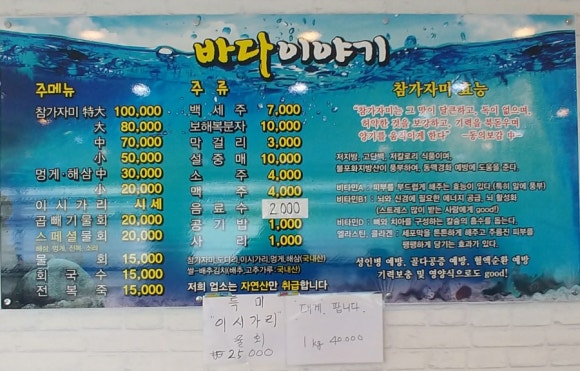 바다이야기
주메뉴
참가자미 特大 100,000
大 80,000
中 70,000
小 50,000
멍게·해삼 中 30,000
小 20,000
이시가리 시세
곱빼기물회 20,000
스페셜물회 20,000
해삼, 멍게, 전복, 소라
물회 15,000
회국수 15,000
전복죽 15,000
주류
백세주 7,000
보해복분자 10,000
막걸리 3,000
설중매 10,000
소주 4,000
맥주 4,000
음료수 2,000
공기밥 1,000
사리 1,000
참가자미,도다리,이시가리,멍게,해삼(국내산)
쌀-배추김치(배추,고추가루:국내산)
저희 업소는 자연산만 취급합니다
참가자미 효능
“참가자미는 그 맛이 달콤하고, 독이 없으며,
허약한 것을 보강하고, 기력을 북돋우며
양기를 움직이게 한다” -동의보감 中-
저지방, 고단백, 저칼로리 식품이며,
불포화지방산이 풍부하여, 동맥경화 예방에 도움을 준다.
비타민A : 피부를 부드럽게 해주는 효능이 있다.(특히 알에 풍부)
비타민B1 : 뇌와 신경에 필요한 에너지 공급, 뇌 활성화
(스트레스 많이 받는 사람에게 good!)
비타민D : 뼈와 치아를 구성하는 칼슘의 흡수를 돕는다.
엘라스틴, 콜라겐 : 세포막을 튼튼하게 해주고 주름진 피부를
팽팽하게 당기는 효과가 있다.
성인병 예방, 골다공증 예방, 혈액순환 예방
기력보충 및 영양식으로도 good!
특미
"이시가리"
물회
25000
대게. 팝니다.
1kg 40000